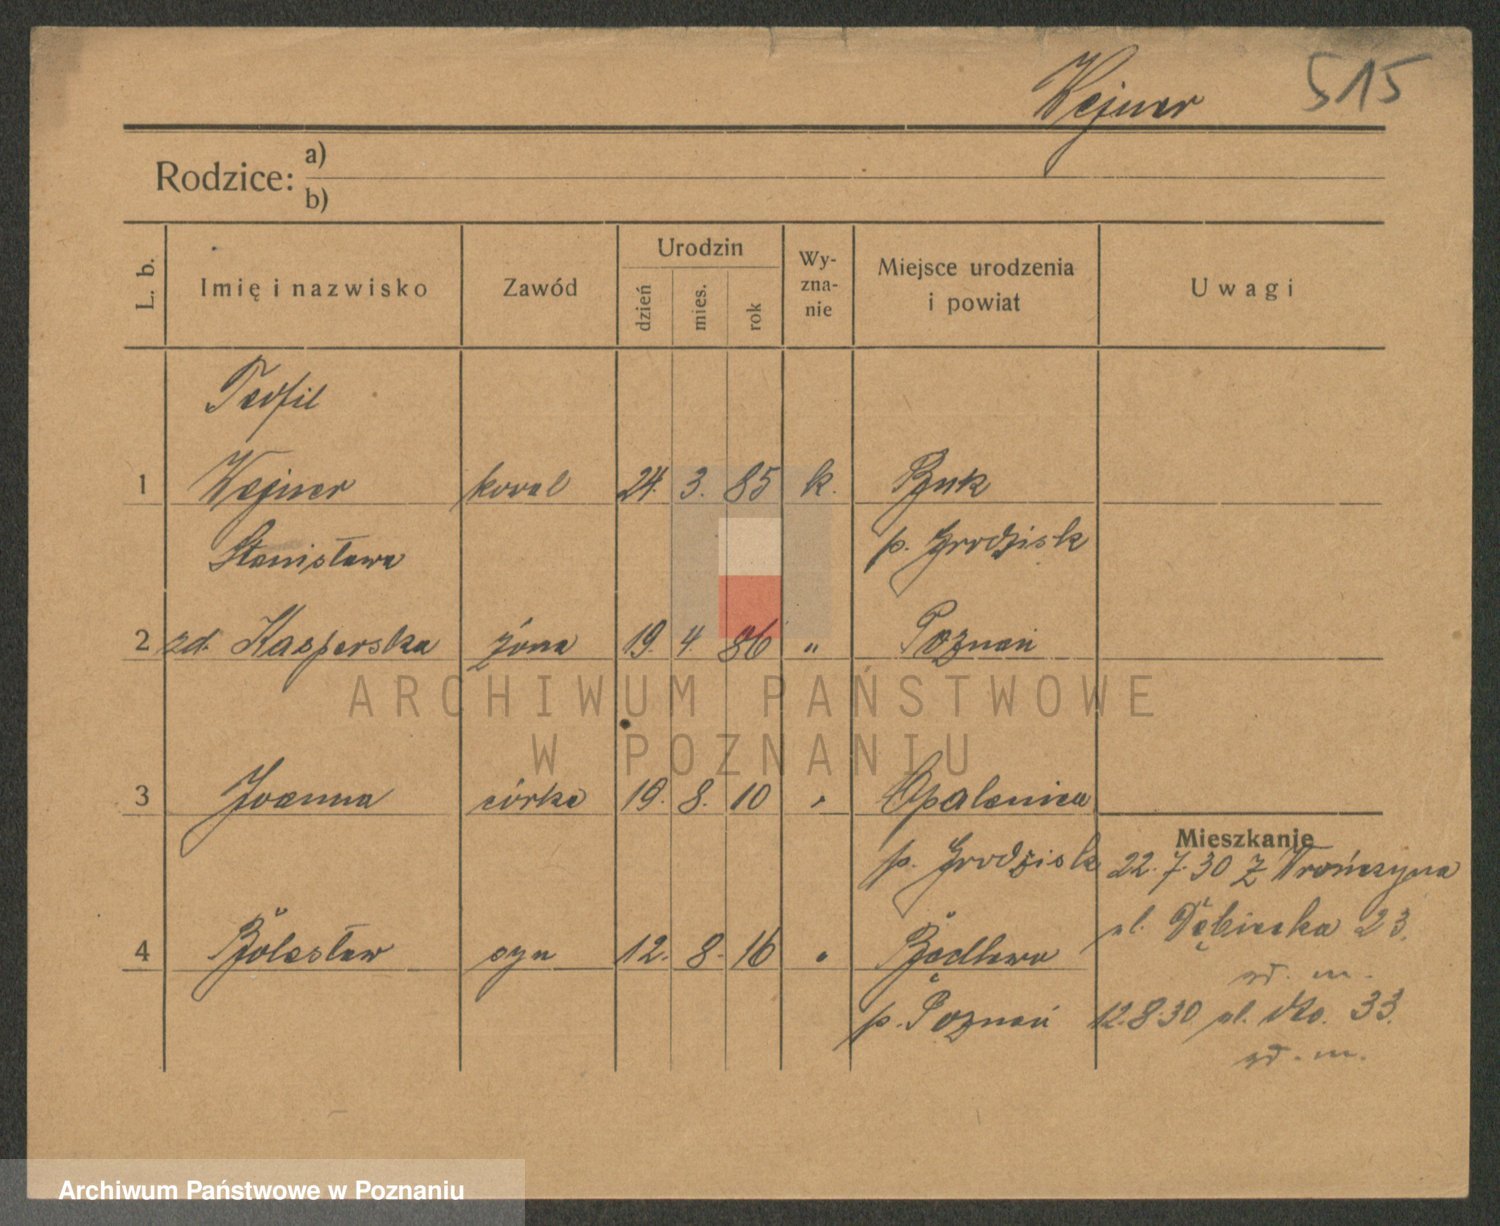 Wejner 515
Rodzice: a)
b)
L. b. Imię i nazwisko Zawód Urodzin dzień mies. rok Wyznanie Miejsce urodzenia i powiat Uwagi
Teofil
1 Wejner koval 24. 3. 85 k. Buk
Stanisława p. Grodzisk
2 zd. Kasperska żona 19. 4. 86 " Poznań
ARCHIWUM PAŃSTWOWE
W POZNANIU
3 Joanna córka 19. 8. 10 " Opalenica
Mieszkanie
p. Grodzisk 22.7.30 z Wrończyna
ul. Dębiecka 23.
4 Bolesław syn 12. 8. 16 " Będlewo
p. Poznań 12.8.30 ul. dto. 33.
Archiwum Państwowe w Poznaniu